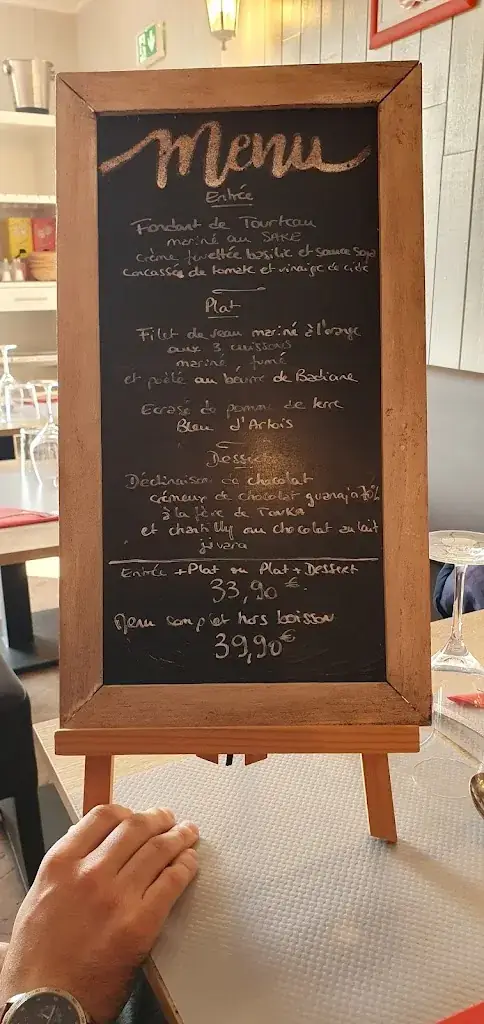 Menu
Entrée
Fondant de Tourteau
mariné au SAKE
crème fouettée basilic et sauce soja
concassés de tomate et vinaigre de cidre
Plat
Filet de veau mariné à l'orange
aux 3 cuissons
mariné fumé
et poêlé au beurre de Badiane
Ecrasé de pomme de terre
Bleu d'Artois
Dessert
Déclinaison de chocolat
crémeux de chocolat guanaja 70%
à la fève de Tonka
et chantilly au chocolat au lait
jivara
Entrée + Plat ou Plat + Dessert
33,90 €
Menu complet hors boisson
39,90 €